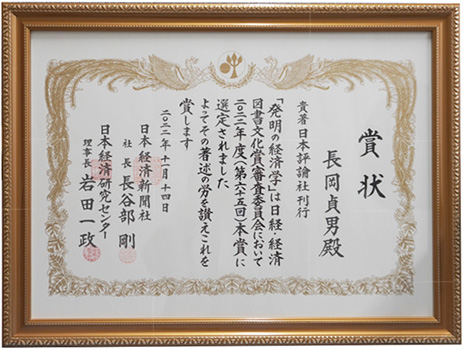 賞状
長岡貞男殿
貴著日本評論社刊行
「発明の経済学」は日経・経済
図書文化賞審査委員会において
二〇二二年度(第六五回)本賞に
選定されました
よってその著述の労を讃えこれを
賞します
二〇二二年十一月十四日
日本経済新聞社
社長 長谷部 剛
日本経済研究センター
理事長 岩田一政